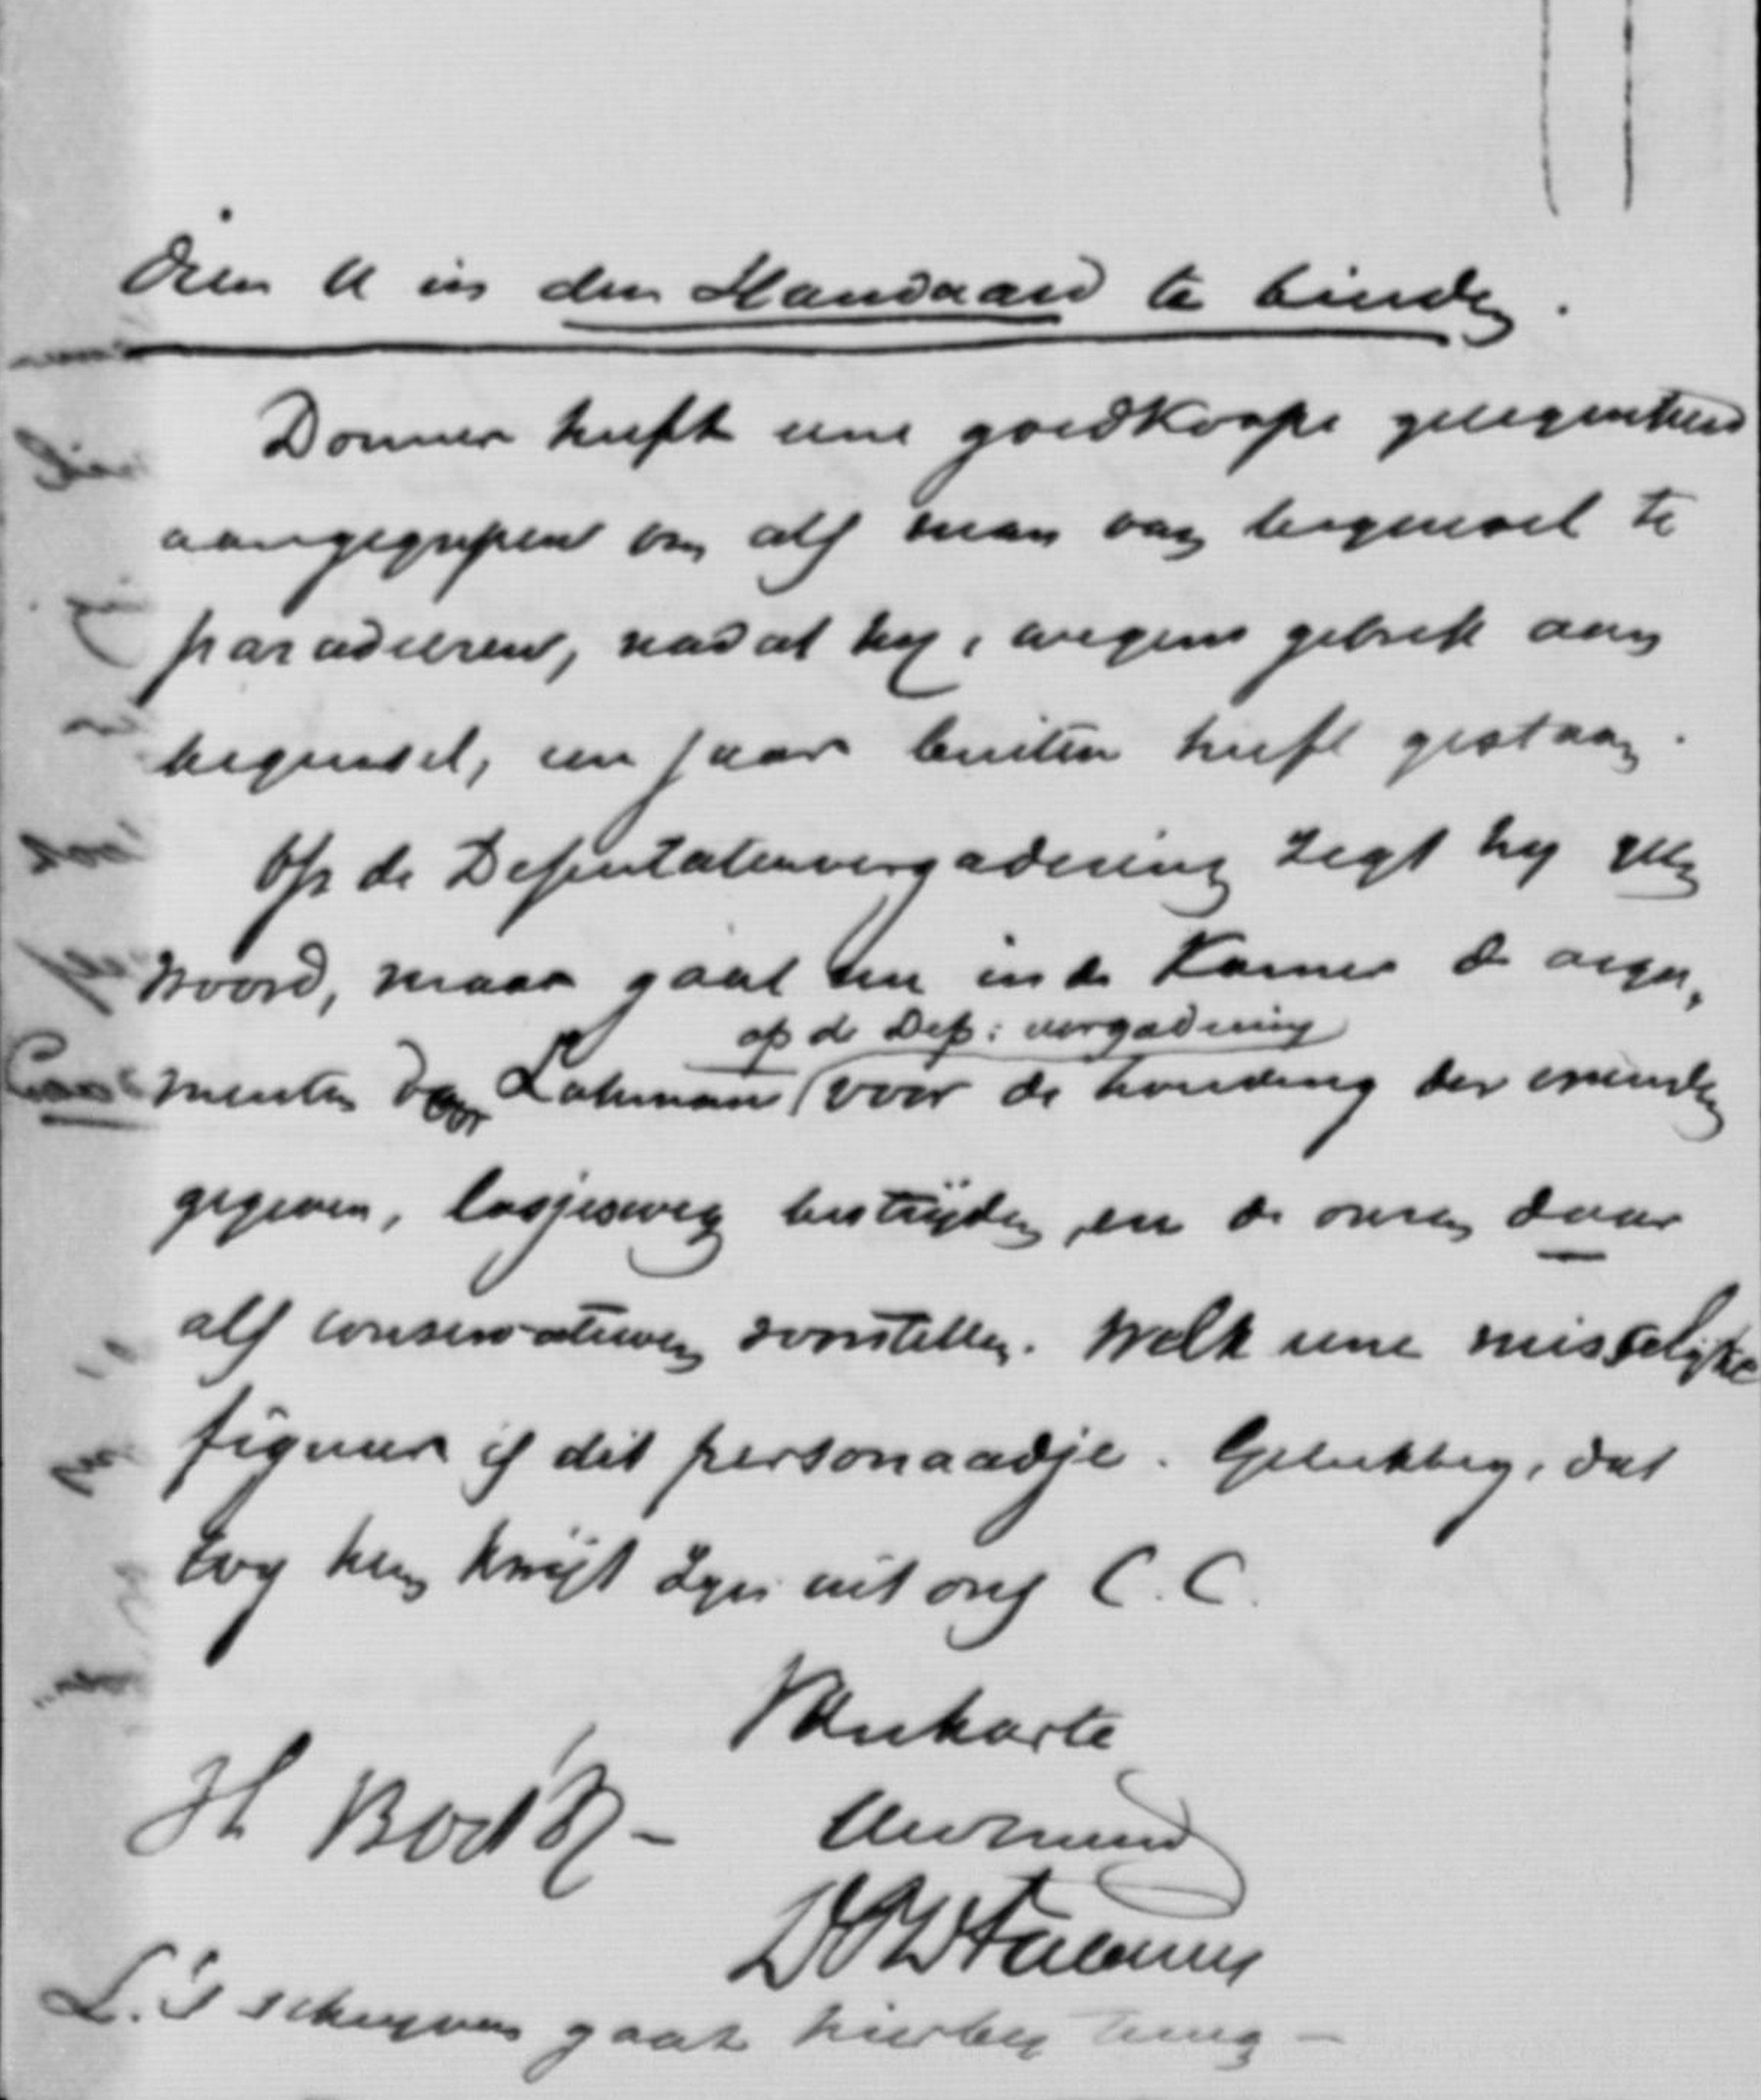 dien U in den Standaard te binden.
Donner heeft eene goedkoope gelegenheid
aangegrepen om als man van beginsel te
paradeeren, nadat hy, wegens gebrek aan
beginsel, een jaar buiten heeft gestaan.
Op de Deputatenvergadering zegt hy geen
woord, maar gaat nu in de Kamer de argu-
op de Dep: vergadering
menten door Lohman voor de houding der
gegeven, losjesweg bestrijden, en de onzen daar
als conservatieven voorstellen. Welk eene misselijke
figuur is dit personaadje. Gelukkig, dat
wy hem kwijt zyn uit ons C.C.
Van harte
H
L.'s schryven gaat hierby terug –